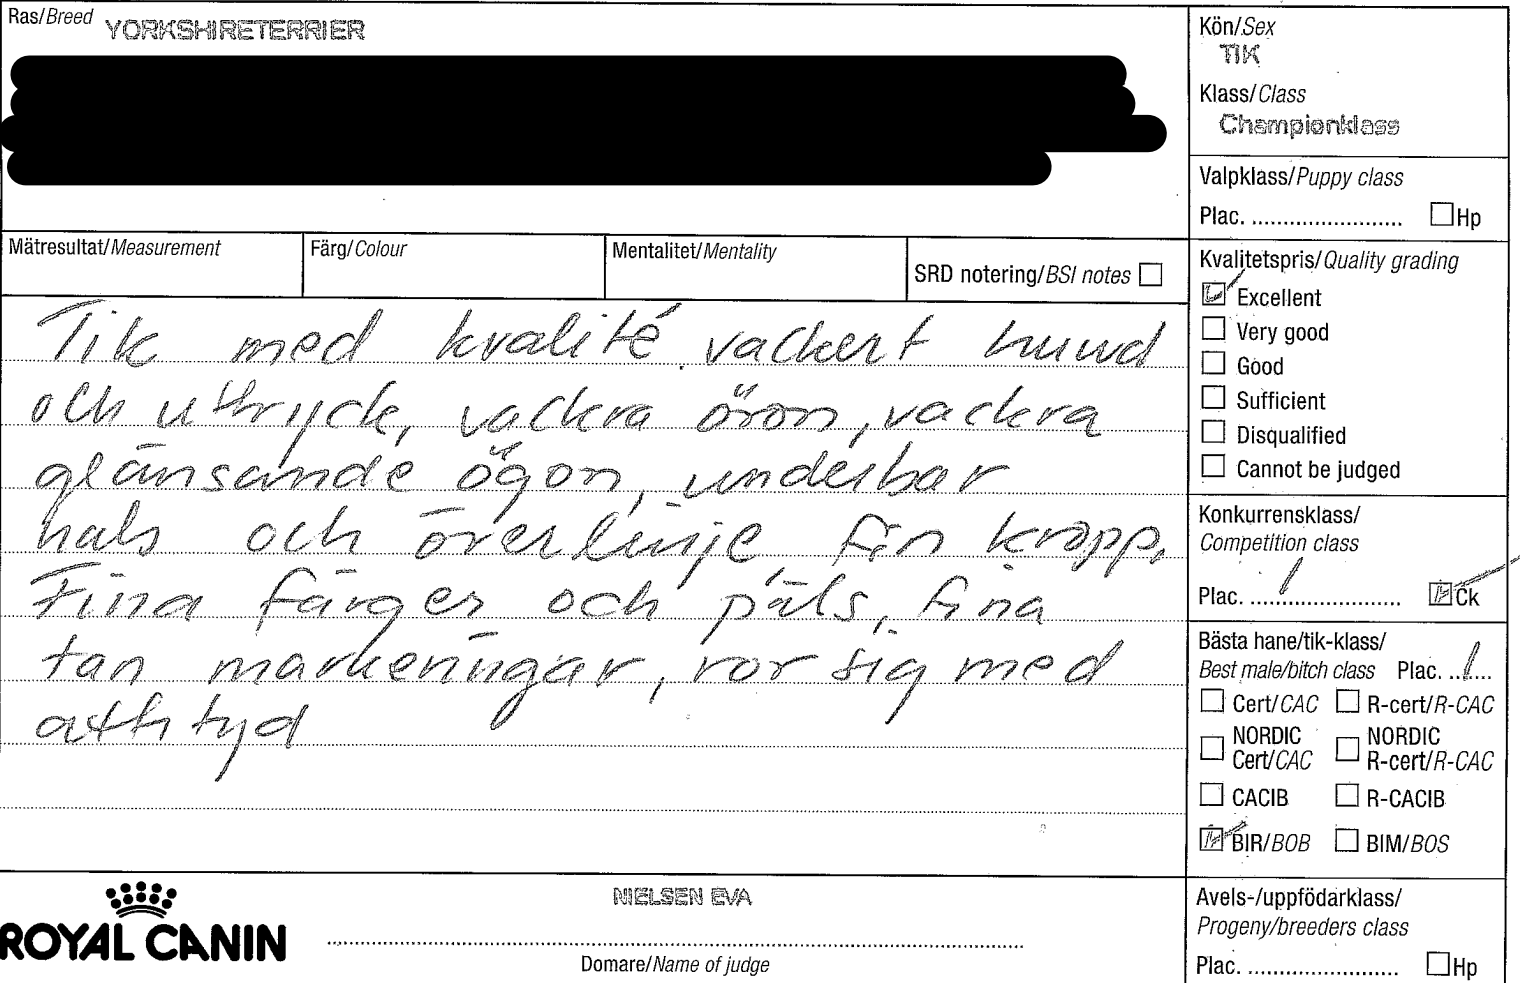 Ras/Breed YORKSHIRETERRIER
Kön/Sex
TIK
Klass/Class
Championklass
Valpklass/Puppy class
Plac. ........................ Hp
Mätresultat/Measurement
Färg/Colour
Mentalitet/Mentality
SRD notering/BSI notes
Kvalitetspris/Quality grading
Excellent
Very good
Good
Sufficient
Disqualified
Cannot be judged
Tik med kvalité vackert huvud
och uttryck, vackra öron, vackra
glänsande ögon, underbar
hals och överlinje, fin kropp.
Fina färger och päls, fina
tan markeringar, rör sig med
attityd
Konkurrensklass/
Competition class
Plac. ....1.................... Ck
Bästa hane/tik-klass/
Best male/bitch class Plac. ..1....
Cert/CAC R-cert/R-CAC
NORDIC Cert/CAC NORDIC R-cert/R-CAC
CACIB R-CACIB
BIR/BOB BIM/BOS
ROYAL CANIN
NIELSEN EVA
Domare/Name of judge
Avels-/uppfödarklass/
Progeny/breeders class
Plac. ........................ Hp